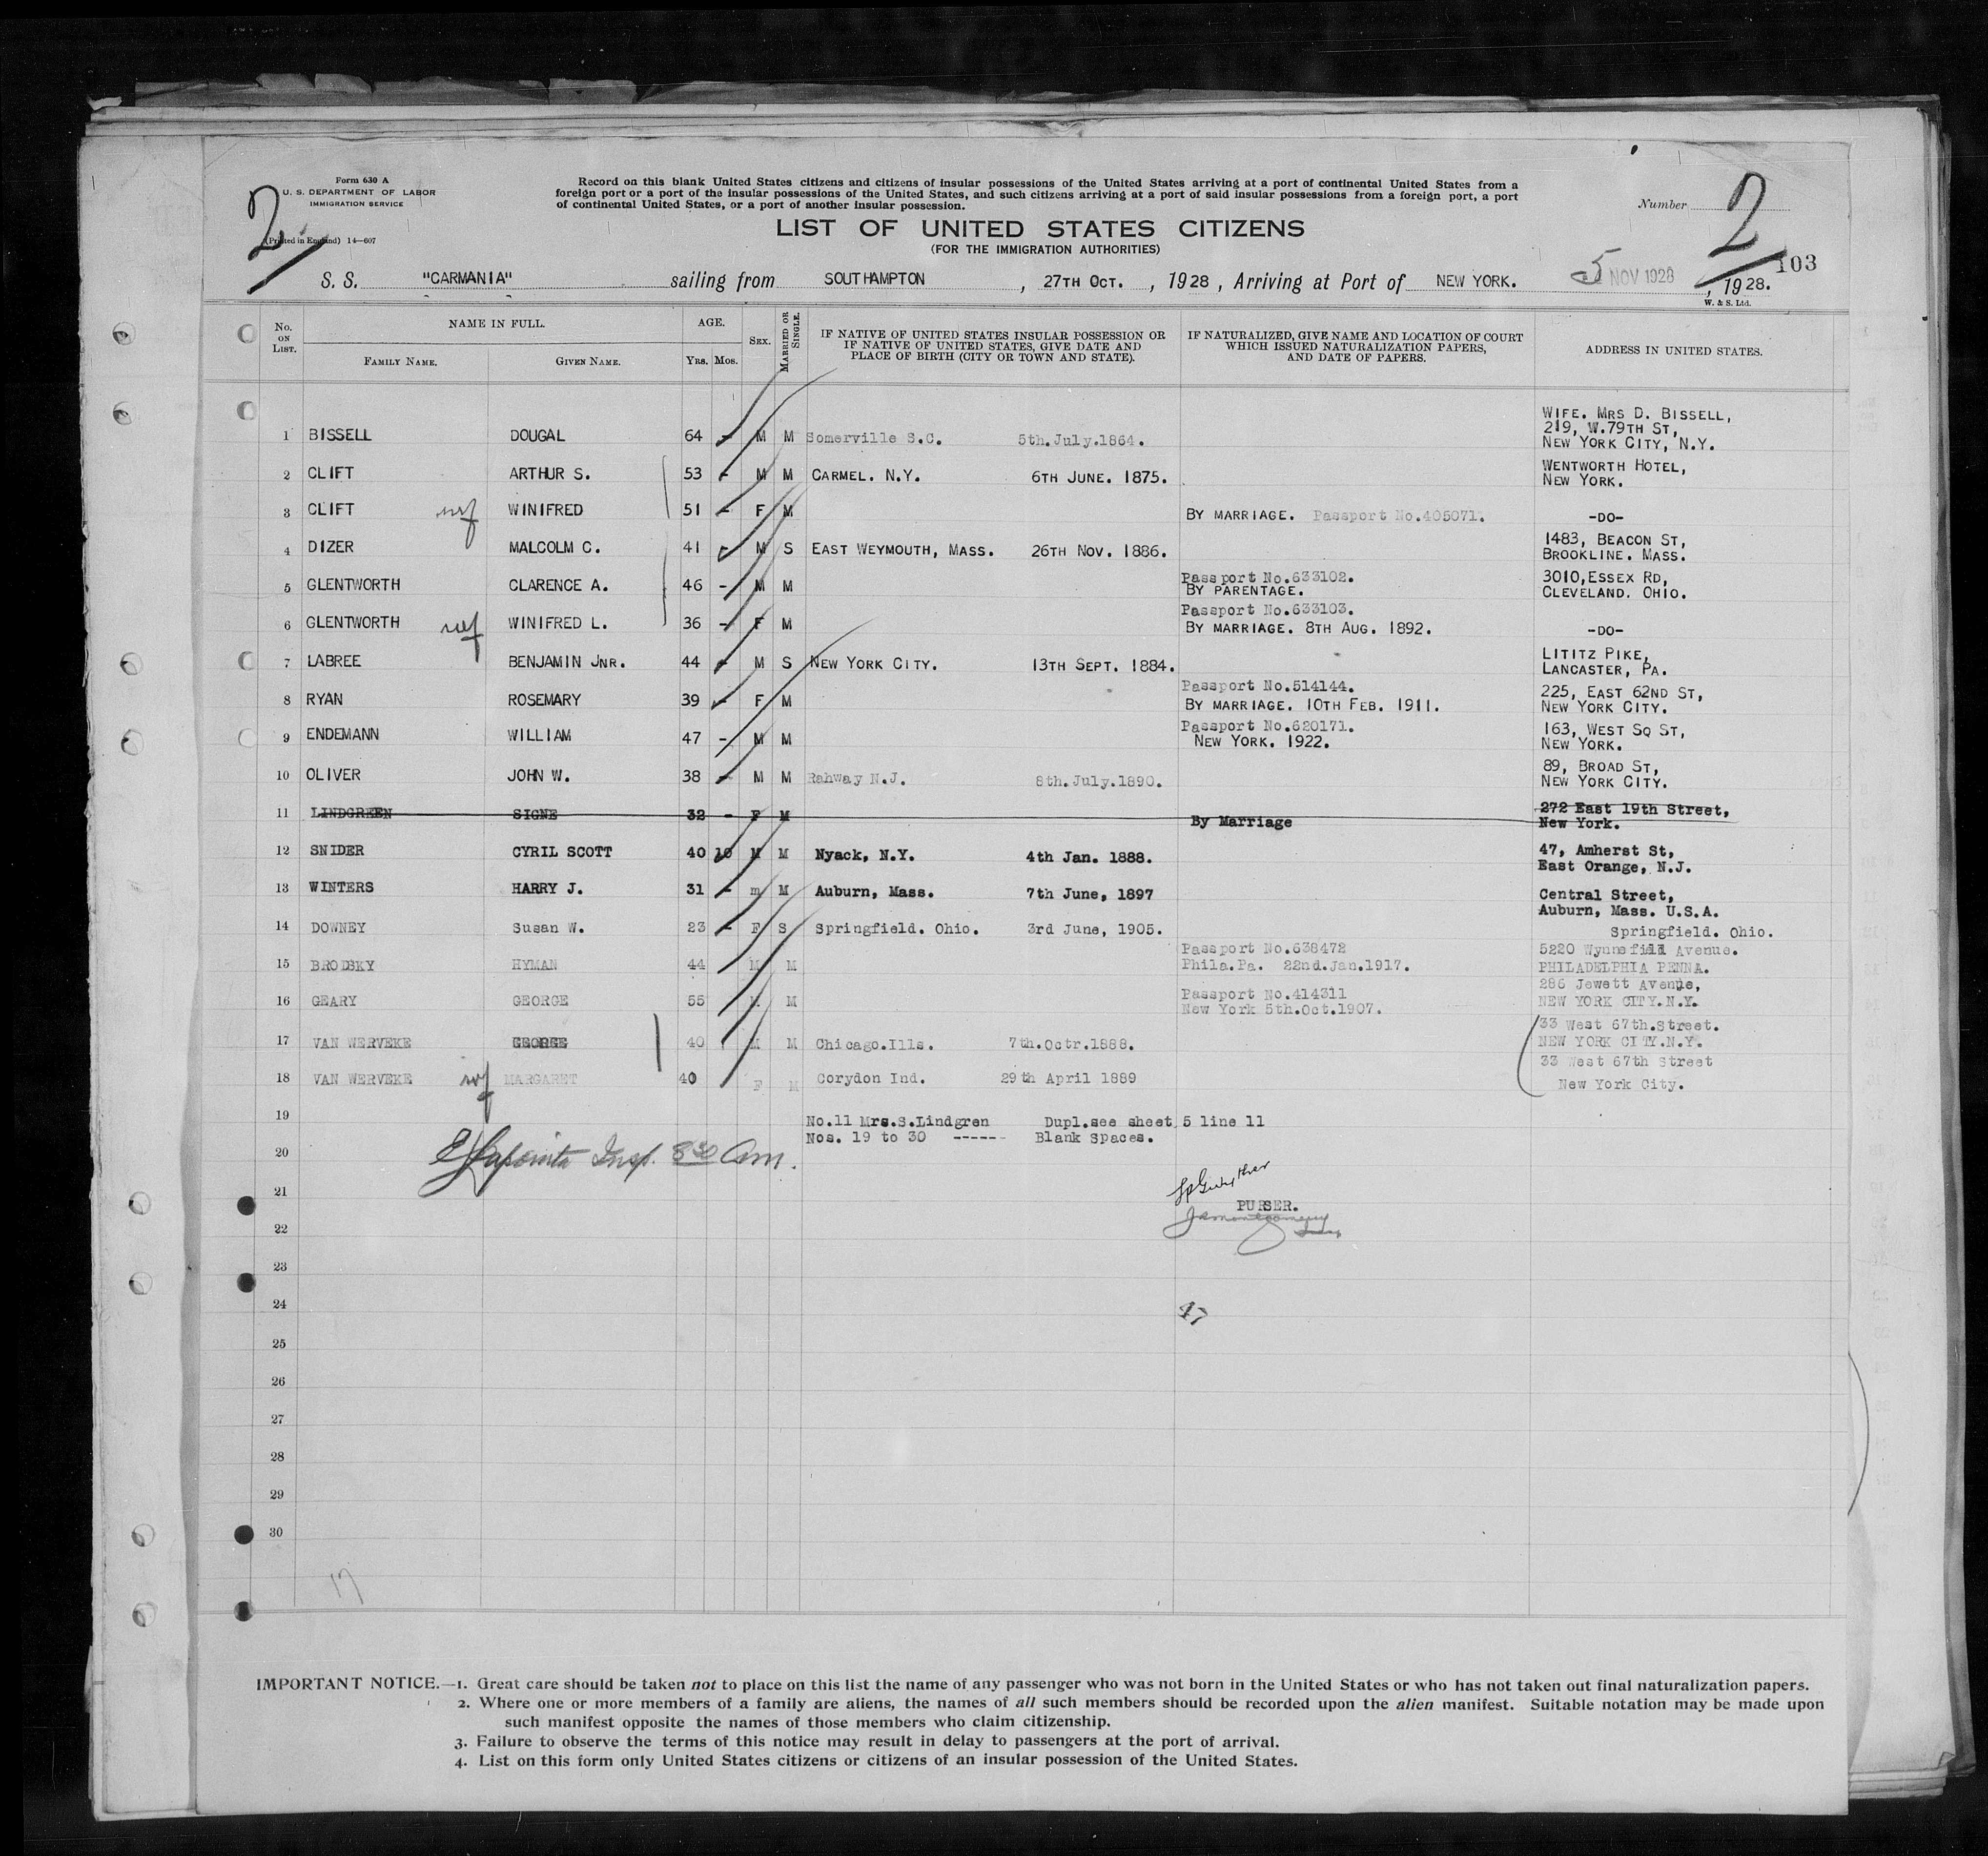 Form 630 A
U. S. DEPARTMENT OF LABOR
IMMIGRATION SERVICE
(Printed in England) 14—607
2
Record on this blank United States citizens and citizens of insular possessions of the United States arriving at a port of continental United States from a
foreign port or a port of the insular possessions of the United States, and such citizens arriving at a port of said insular possessions from a foreign port, a port
of continental United States, or a port of another insular possession.
LIST OF UNITED STATES CITIZENS
(FOR THE IMMIGRATION AUTHORITIES)
Number 2
103
S. S. "CARMANIA" sailing from SOUTHAMPTON, 27TH OCT., 1928, Arriving at Port of NEW YORK. 5 NOV 1928, 1928.
W. & S. Ltd.
No. ON LIST. NAME IN FULL. AGE. SEX. MARRIED OR SINGLE. IF NATIVE OF UNITED STATES INSULAR POSSESSION OR IF NATIVE OF UNITED STATES, GIVE DATE AND PLACE OF BIRTH (CITY OR TOWN AND STATE). IF NATURALIZED, GIVE NAME AND LOCATION OF COURT WHICH ISSUED NATURALIZATION PAPERS, AND DATE OF PAPERS. ADDRESS IN UNITED STATES.
FAMILY NAME. GIVEN NAME. YRS. MOS.
WIFE. MRS D. BISSELL,
219, W.79TH ST,
1 BISSELL DOUGAL 64 - M M Somerville S.C. 5th.July.1864. NEW YORK CITY, N.Y.
WENTWORTH HOTEL,
2 CLIFT ARTHUR S. 53 - M M CARMEL. N.Y. 6TH JUNE. 1875. NEW YORK.
3 CLIFT WINIFRED 51 - F M BY MARRIAGE. Passport No.405071. -DO-
1483, BEACON ST,
4 DIZER MALCOLM C. 41 - M S EAST WEYMOUTH, MASS. 26TH NOV. 1886. BROOKLINE. MASS.
Passport No.633102. 3010,ESSEX RD,
5 GLENTWORTH CLARENCE A. 46 - M M BY PARENTAGE. CLEVELAND. OHIO.
Passport No.633103.
6 GLENTWORTH WINIFRED L. 36 - F M BY MARRIAGE. 8TH AUG. 1892. -DO-
LITITZ PIKE,
7 LABREE BENJAMIN JNR. 44 - M S NEW YORK CITY. 13TH SEPT. 1884. LANCASTER, PA.
Passport No.514144. 225, EAST 62ND ST,
8 RYAN ROSEMARY 39 - F M BY MARRIAGE. 10TH FEB. 1911. NEW YORK CITY.
Passport No.620171. 163, WEST SQ ST,
9 ENDEMANN WILLIAM 47 - M M NEW YORK. 1922. NEW YORK.
89, BROAD ST,
10 OLIVER JOHN W. 38 - M M Rahway N.J. 8th.July.1890. NEW YORK CITY.
272 East 19th Street,
11 LINDGREEN SIGNE 32 - F M By Marriage New York.
47, Amherst St,
12 SNIDER CYRIL SCOTT 40 10 M M Nyack, N.Y. 4th Jan. 1888. East Orange, N.J.
Central Street,
13 WINTERS HARRY J. 31 - m M Auburn, Mass. 7th June, 1897 Auburn, Mass. U.S.A.
14 DOWNEY Susan W. 23 - F S Springfield. Ohio. 3rd June, 1905. Springfield. Ohio.
Passport No.638472 5220 Wynnefield Avenue.
15 BRODSKY HYMAN 44 M M Phila.Pa. 22nd.Jan.1917. PHILADELPHIA PENNA.
Passport No.414311 286 Jewett Avenue,
16 GEARY GEORGE 55 M M New York 5th.Oct.1907. NEW YORK CITY.N.Y.
33 West 67th.Street.
17 VAN WERVEKE GEORGE 40 M M Chicago.Ills. 7th.Octr.1888. NEW YORK CITY.N.Y.
33 West 67th Street
18 VAN WERVEKE MARGARET 40 F M Corydon Ind. 29th April 1889 New York City.
19 No.11 Mrs.S.Lindgren Dupl.see sheet 5 line 11
Nos. 19 to 30 ------ Blank Spaces.
20 Insp. 8 30 Am.
21
PURSER.
22
23
24
47
25
26
27
28
29
30
17
IMPORTANT NOTICE.—1. Great care should be taken not to place on this list the name of any passenger who was not born in the United States or who has not taken out final naturalization papers.
2. Where one or more members of a family are aliens, the names of all such members should be recorded upon the alien manifest. Suitable notation may be made upon
such manifest opposite the names of those members who claim citizenship.
3. Failure to observe the terms of this notice may result in delay to passengers at the port of arrival.
4. List on this form only United States citizens or citizens of an insular possession of the United States.